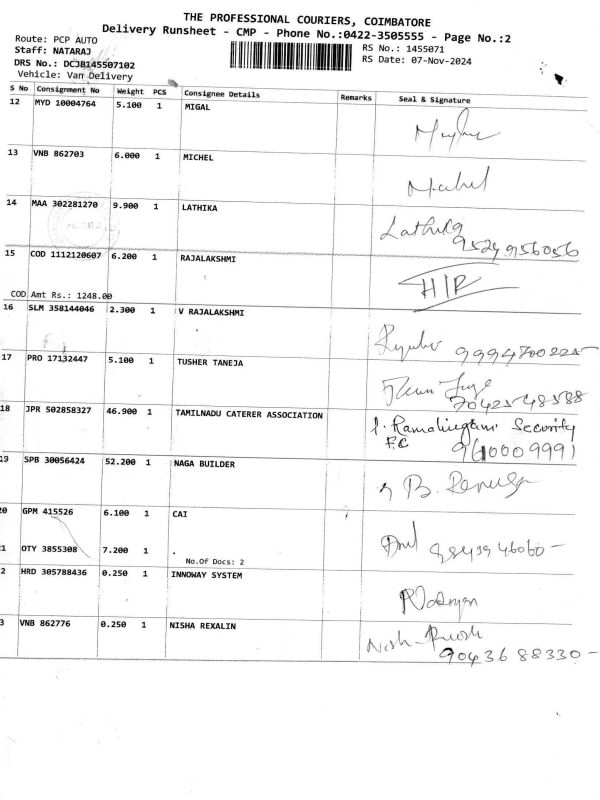 THE PROFESSIONAL COURIERS, COIMBATORE
Delivery Runsheet - CMP - Phone No.:0422-3505555 - Page No.:2
Route: PCP AUTO
Staff: NATARAJ
DRS No.: DCJB145507102
Vehicle: Van Delivery
RS No.: 1455071
RS Date: 07-Nov-2024
S No Consignment No Weight PCS Consignee Details Remarks Seal & Signature
12 MYD 10004764 5.100 1 MIGAL
13 VNB 862703 6.000 1 MICHEL
14 MAA 302281270 9.900 1 LATHIKA Lathika
9524956056
15 COD 1112120607 6.200 1 RAJALAKSHMI
COD Amt Rs.: 1248.00
16 SLM 358144046 2.300 1 V RAJALAKSHMI
9994700225-
17 PRO 17132447 5.100 1 TUSHER TANEJA
7042548588
18 JPR 502858327 46.900 1 TAMILNADU CATERER ASSOCIATION Ramalingam Security
19 SPB 30056424 52.200 1 NAGA BUILDER
20 GPM 415526 6.100 1 CAI
21 OTY 3855308 7.200 1 .
No.Of Docs: 2
2 HRD 305788436 0.250 1 INNOWAY SYSTEM
3 VNB 862776 0.250 1 NISHA REXALIN
9043688330-